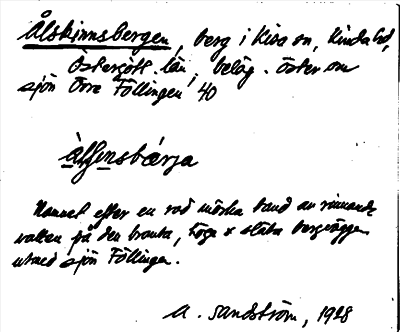 Ålskinnsbergen, berg i Kisa sn, Kinda hd,
Östergötl. län, beläg. öster om
sjön Övre Föllingen, 40
Namnet efter en rad mörka band av rinnande
vatten på den branta, höga & släta bergväggen
utmed sjön Föllingen.
A. Sandström, 1928